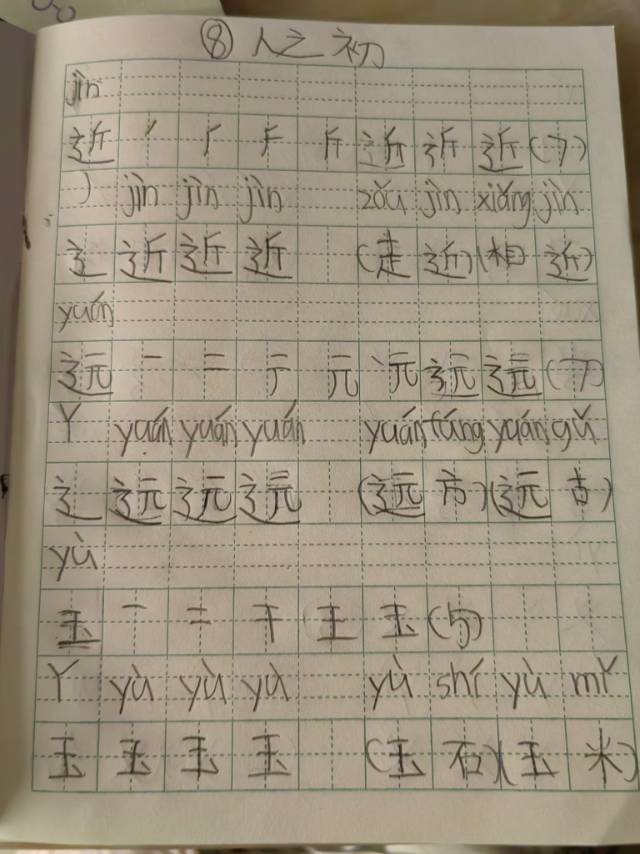 ⑧ 人之初
jìn
近 ノ 厂 斤 斤 近 近 近 (7)
jìn jìn jìn zǒu jìn xiāng jìn
辶 近 近 近 (走 近) (相 近)
yuán
远 一 二 テ 元 远 远 远 (7)
Y yuán yuán yuán yuán fáng yuán gǔ
辶 远 远 远 (远 方) (远 古)
yù
玉 一 二 干 王 玉 (5)
Y yù yù yù yù shí yù mǐ
玉 玉 玉 玉 (玉 石) (玉 米)